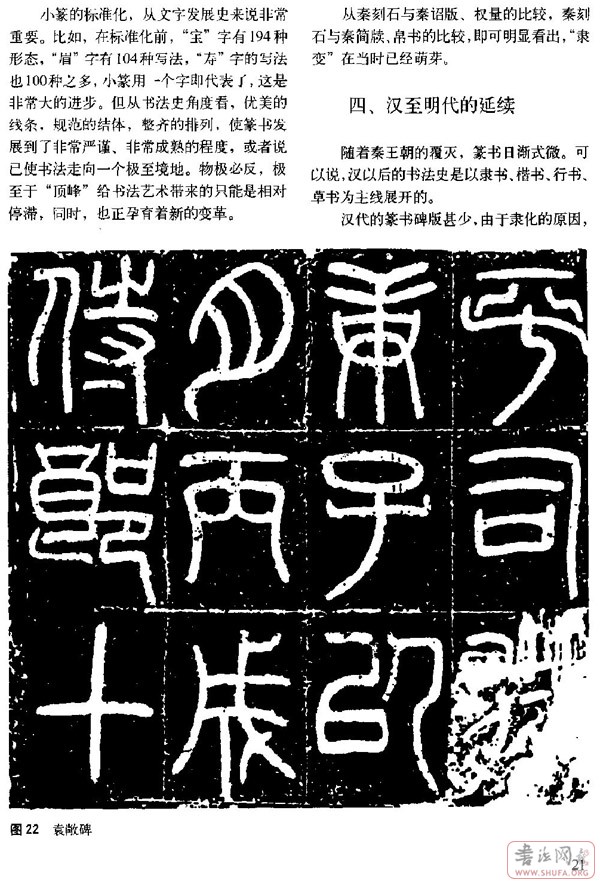 小篆的标准化，从文字发展史来说非常
重要。比如，在标准化前，“宝”字有194种
形态，“眉”字有104种写法，“寿”字的写法
也100种之多，小篆用一个字即代表了，这是
非常大的进步。但从书法史角度看，优美的
线条，规范的结体，整齐的排列，使篆书发
展到了非常严谨、非常成熟的程度，或者说
已使书法走向一个极至境地。物极必反，极
至于“顶峰”给书法艺术带来的只能是相对
停滞，同时，也正孕育着新的变革。
从秦刻石与秦诏版、权量的比较，秦刻
石与秦简牍、帛书的比较，即可明显看出，“隶
变”在当时已经萌芽。
四、汉至明代的延续
随着秦王朝的覆灭，篆书日渐式微。可
以说，汉以后的书法史是以隶书、楷书、行书、
草书为主线展开的。
汉代的篆书碑版甚少，由于隶化的原因，
平司
庚子以
月丙戌
侍郎十
图22 袁敞碑
书法网
WWW.SHUFA.ORG
21